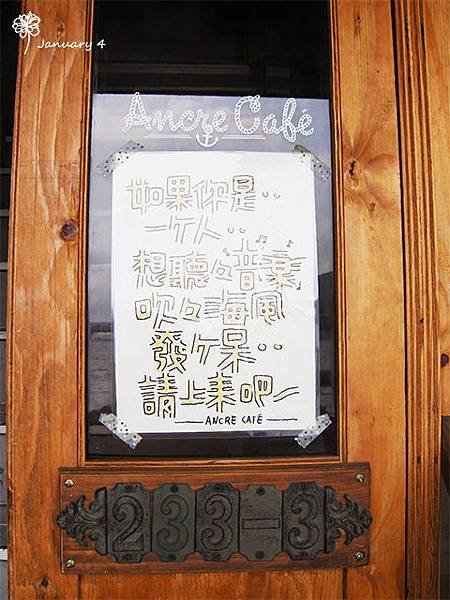 January 4
Ancre Café
如果你是..
一个人..
想聽々音樂
吹々海風
發ケ呆..
請上來吧~
ANCRE CAFÉ
233-3